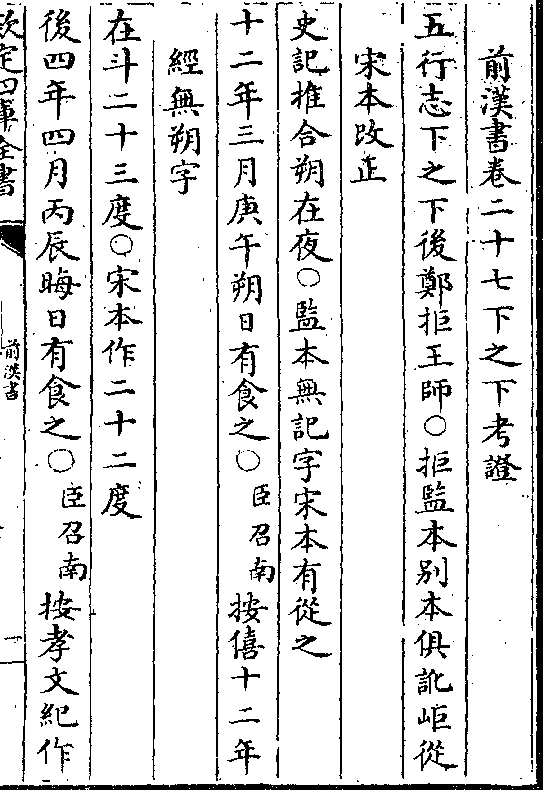 前漢書卷二十七下之下考證
五行志下之下後鄭拒王師○拒監本別本俱訛岠從
宋本改正
史記推合朔在夜○監本無記字宋本有從之
十二年三月庚午朔日有食之○臣召南按僖十二年
經無朔字
在斗二十三度○宋本作二十二度
後四年四月丙辰晦日有食之○臣召南按孝文紀作
欽定四庫全書
前漢書